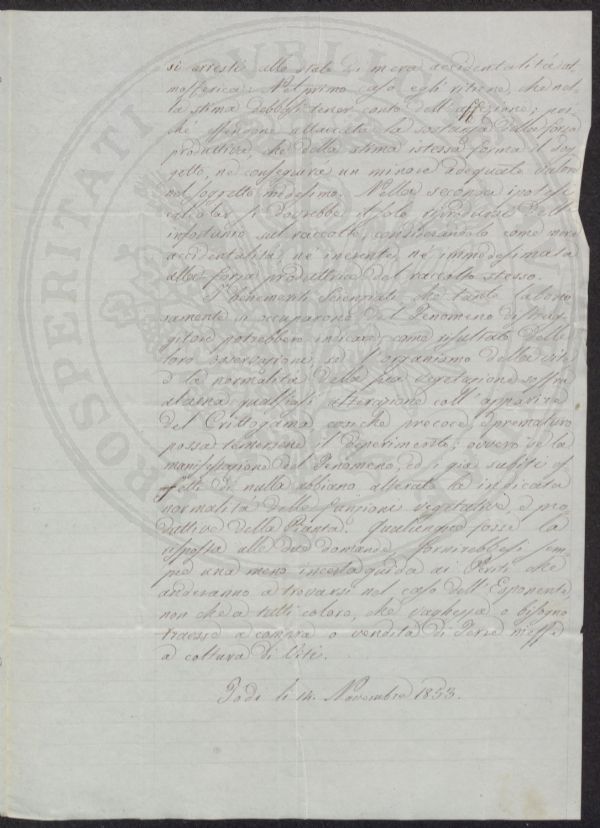 si arresti allo stato di mera accidentalità at-
mosferica: Nel primo caso egli ritiene, che nel-
la stima debbasi tener conto dell'affezione; poi-
chè attaccata la sostanza della forza
produttiva, che della stima istessa forma il sog-
getto, ne conseguira un minore adeguato valore
nel soggetto medesimo. Nella seconda ipotesi
si dovrebbe il solo dell'
infortunio sul raccolto, considerandolo come mera
accidentalità nè inerente, nè immedesimata
alla forza produttrice del raccolto stesso.
I benemeriti Scienziati che tanto labono-
samente si occuparono del Fenomeno distrug-
gitore potrebbero indicare come risultato delle
loro osservazioni, se l'organismo della vite
e la normalità della sua secrezione soffra
alcuna qualsiasi alterazione coll'apparire
del Crittogama cosichè precoce, e prematuro
possa temersene il deperimento; ovvero se la
manifestazione del Fenomeno, ed i già subiti ef-
fetti di nulla abbiano alterato la indicata
normalità delle funzioni vegetative, e pro-
duttive della Pianta. Qualunque fosse la
risposta alle due domande fornirebbesi sem-
pre una meno incerta guida ai Periti che
anderanno a trovarsi nel caso dell'Esponente
non che a tutti coloro, che vaghezza o bisogno
traesse a compra o vendita di Terre messe
a coltura di Viti.
Todi li 14. Novembre 1853.
PROSPERITATI PVBLIC